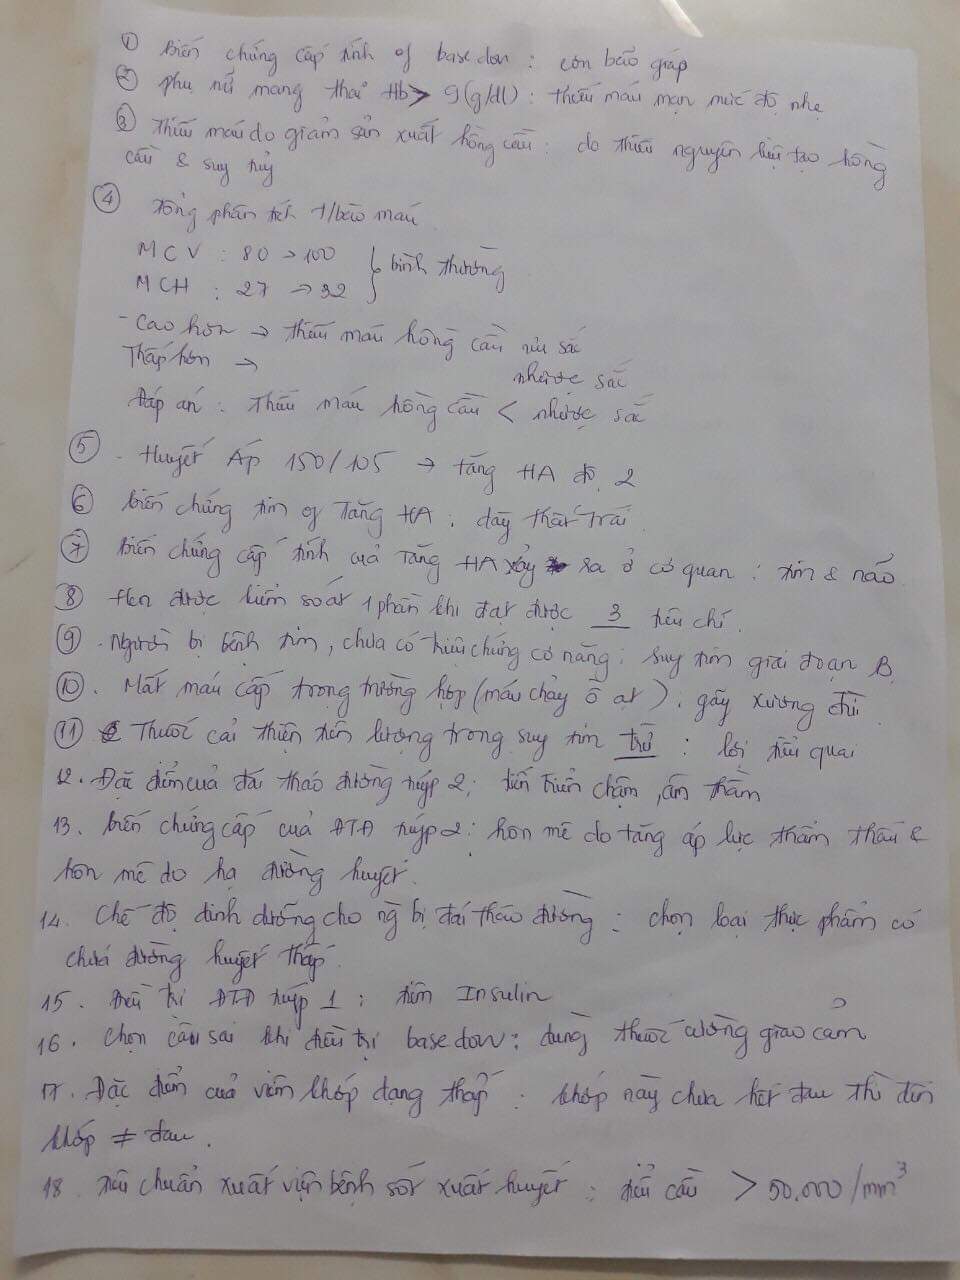 ① Biến chứng cấp tính of basedow : cơn bão giáp
② Phụ nữ mang thai Hb > 9 (g/dl) : thiếu máu mạn mức độ nhẹ
③ Thiếu máu do giảm sản xuất hồng cầu : do thiếu nguyên liệu tạo hồng
cầu & suy tủy
④ Tổng phân tích T/bào máu
MCV : 80 → 100
MCH : 27 → 32 } bình thường
- Cao hơn → thiếu máu hồng cầu sắc
Thấp hơn → nhược sắc
Đáp án : Thiếu máu hồng cầu < nhược sắc
⑤ . Huyết Áp 150/105 → tăng HA độ 2
⑥ biến chứng tim of Tăng HA : dày thất trái
⑦ Biến chứng cấp tính của Tăng HA xảy ra ở cơ quan : tim & não
⑧ Hen được kiểm soát 1 phần khi đạt được 3 tiêu chí.
⑨ . Người bị bệnh tim, chưa có triệu chứng cơ năng : suy tim giai đoạn B
⑩ . Mất máu cấp trong trường hợp (máu chảy ồ ạt) : gãy xương đùi
⑪ Thuốc cải thiện tiên lượng trong suy tim trừ : lợi tiểu quai
12. Đặc điểm của đái tháo đường týp 2 : tiến triển chậm, âm thầm
13. biến chứng cấp của ĐTĐ týp 2 : hôn mê do tăng áp lực thẩm thấu &
hôn mê do hạ đường huyết.
14. Chế độ dinh dưỡng cho ng bị đái tháo đường : chọn loại thực phẩm có
chưá đường huyết thấp.
15. Điều trị ĐTĐ týp 1 : tiêm Insulin
16. Chọn câu sai khi điều trị basedow : dùng thuốc cường giao cảm
17. Đặc điểm của viêm khớp dạng thấp : khớp này chưa hết đau thì đến
khớp ≠ đau.
18. Tiêu chuẩn xuất viện bệnh sốt xuất huyết : tiểu cầu > 50.000/mm³